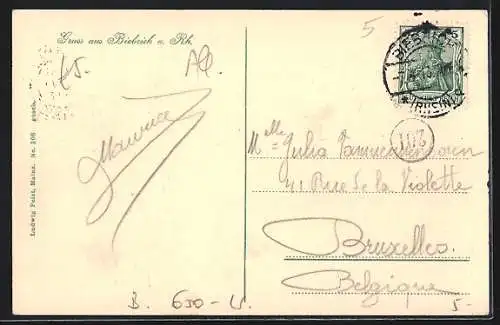 Gruss aus Biebrich a. Rh.
5
5
45.
Al.
Maurice
Ludwig Feist, Mainz. No. 106 gesch.
BIEBRICH
* (RHEIN)
Melle Julia
41 Rue de la Violette
Bruxelles
Belgique
B. 650-
5-